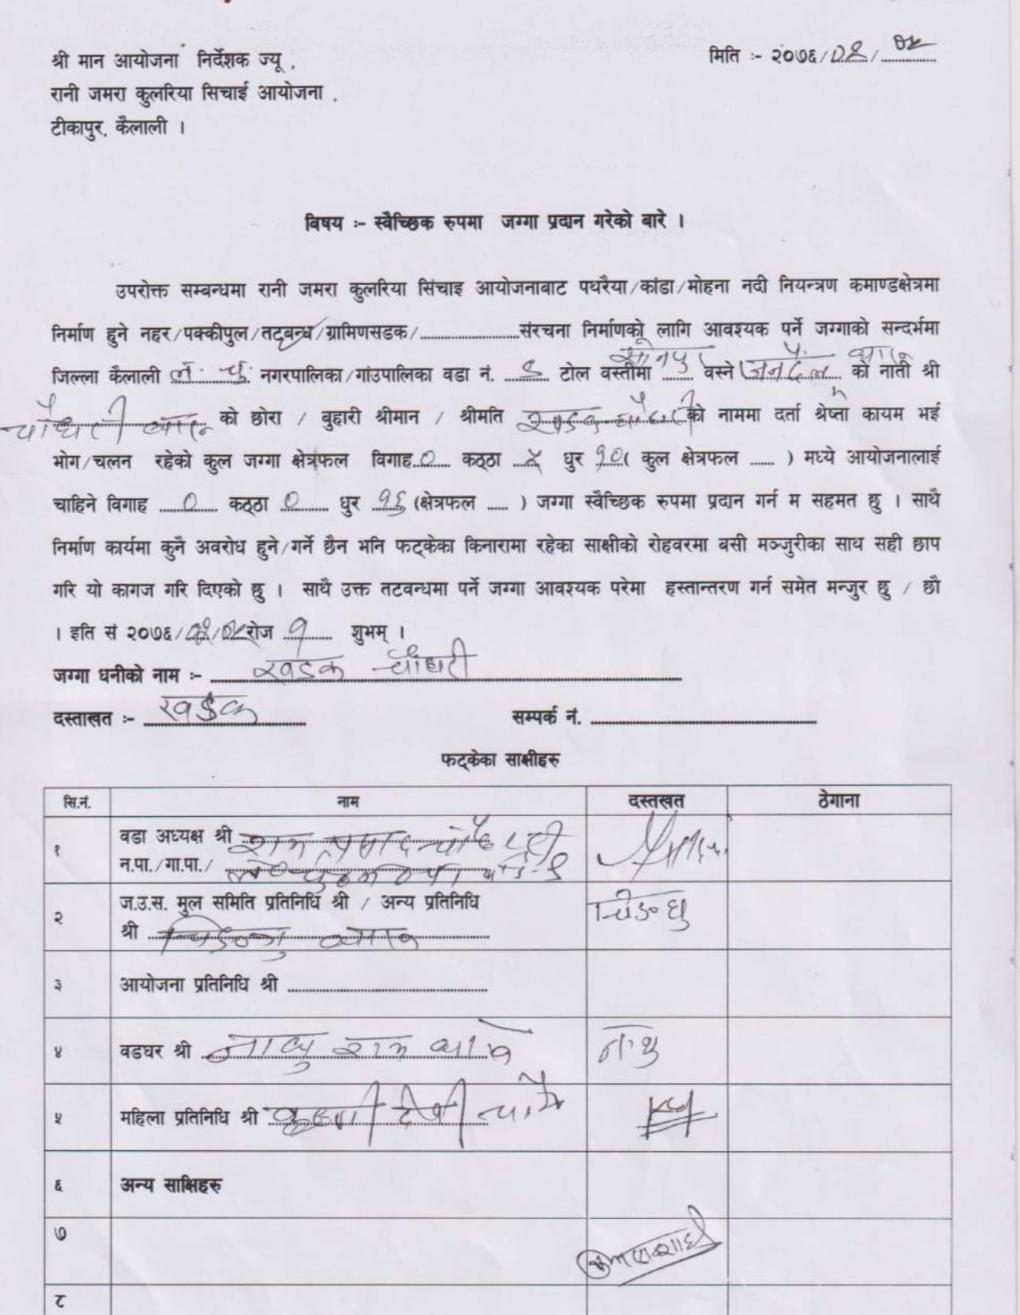 श्री मान आयोजना निर्देशक ज्यू ,
मिति :- २०७६/०९/
रानी जमरा कुलरिया सिचाई आयोजना ,
टीकापुर, कैलाली ।
विषय :- स्वैच्छिक रुपमा जग्गा प्रदान गरेको बारे ।
उपरोक्त सम्बन्धमा रानी जमरा कुलरिया सिंचाइ आयोजनाबाट पथरैया/कांडा/मोहना नदी नियन्त्रण कमाण्डक्षेत्रमा
निर्माण हुने नहर/पक्कीपुल/तट्बन्ध/ग्रामिणसडक/....................संरचना निर्माणको लागि आवश्यक पर्ने जग्गाको सन्दर्भमा
जिल्ला कैलाली ल. चु. नगरपालिका/गांउपालिका वडा नं. टोल वस्तीमा वस्ने को नाती श्री
चौधरी थारु को छोरा / बुहारी श्रीमान / श्रीमति खडक चौधरी को नाममा दर्ता श्रेष्ता कायम भई
भोग/चलन रहेको कुल जग्गा क्षेत्रफल विगाह ० कठ्ठा धुर १०( कुल क्षेत्रफल ..... ) मध्ये आयोजनालाई
चाहिने विगाह ० कठ्ठा ० धुर १६ (क्षेत्रफल ..... ) जग्गा स्वैच्छिक रुपमा प्रदान गर्न म सहमत छु । साथै
निर्माण कार्यमा कुनै अवरोध हुने/गर्ने छैन भनि फट्केका किनारामा रहेका साक्षीको रोहवरमा बसी मञ्जुरीका साथ सही छाप
गरि यो कागज गरि दिएको छु । साथै उक्त तटवन्धमा पर्ने जग्गा आवश्यक परेमा हस्तान्तरण गर्न समेत मन्जुर छु / छौ
। इति सं २०७६/ रोज १ शुभम् ।
जग्गा धनीको नाम :- खडक चौधरी
दस्ताखत :- खडक सम्पर्क नं.
फट्केका साक्षीहरु
सि.नं. नाम दस्तखत ठेगाना
१ वडा अध्यक्ष श्री राम प्रसाद चौधरी
न.पा./गा.पा./
२ ज.उ.स. मुल समिति प्रतिनिधि श्री / अन्य प्रतिनिधि
श्री थारु
३ आयोजना प्रतिनिधि श्री
४ वडघर श्री राम
५ महिला प्रतिनिधि श्री देवी
६ अन्य साक्षिहरु
७
८